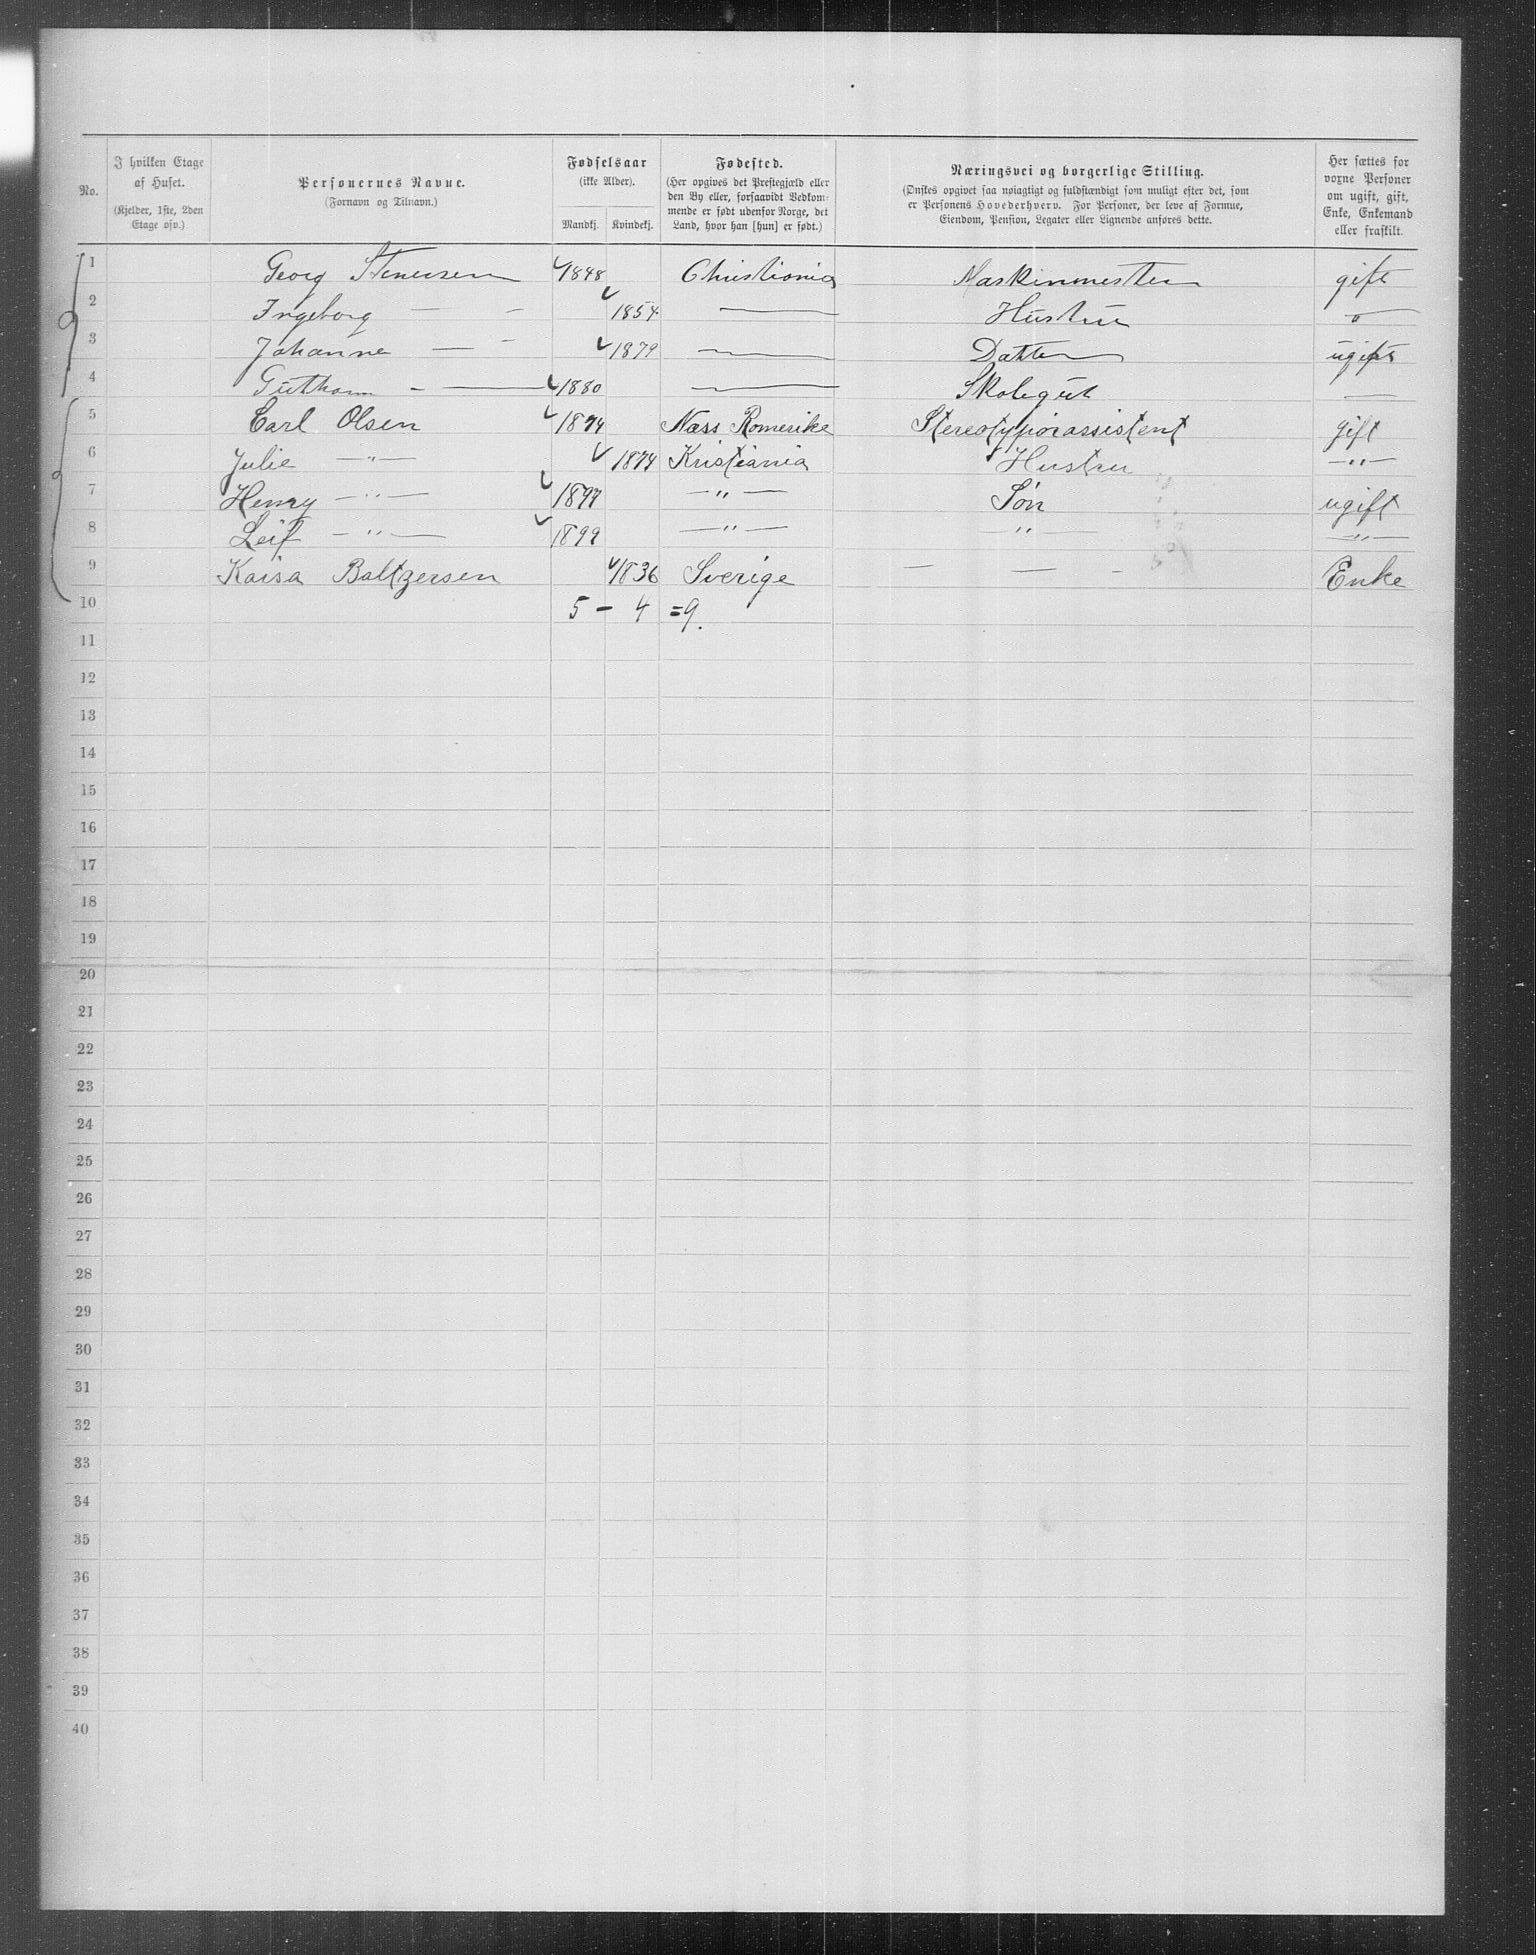 No.
I hvilken Etage
af Huset.
(Kjelder, 1ste, 2den
Etage osv.)
Personernes Navne.
(Fornavn og Tilnavn.)
Fødselsaar
(ikke Alder).
Mandkj. Kvindekj.
Fødested.
(Her opgives det Prestegjæld eller
den By eller, forsaavidt Vedkom-
mende er født udenfor Norge, det
Land, hvor han [hun] er født.)
Næringsvei og borgerlige Stilling.
(Ønskes opgivet saa nøiagtigt og fuldstændigt som muligt efter det, som
er Personens Hovederhverv. For Personer, der leve af Formue,
Eiendom, Pension, Legater eller Lignende anføres dette.
Her sættes for
voxne Personer
om ugift, gift,
Enke, Enkemand
eller fraskilt.
1 Georg Stenersen 1848 Christiania Maskinmester gift
2 Ingeborg — - 1854 — Hustru "
3 Johanne — - 1879 — Datter ugift
4 Guthorm - — 1880 — Skolegut —
5 Carl Olsen 1874 Næss Romerike Stereotypiørassistent gift
6 Julie —"— 1874 Kristiania Hustru —"—
7 Henry —"— 1897 —"— Søn ugift
8 Leif —"— 1899 —"— " —"—
9 Kaisa Baltzersen 1836 Sverige — — - Enke
10 5 - 4 = 9.
11
12
13
14
15
16
17
18
19
20
21
22
23
24
25
26
27
28
29
30
31
32
33
34
35
36
37
38
39
40